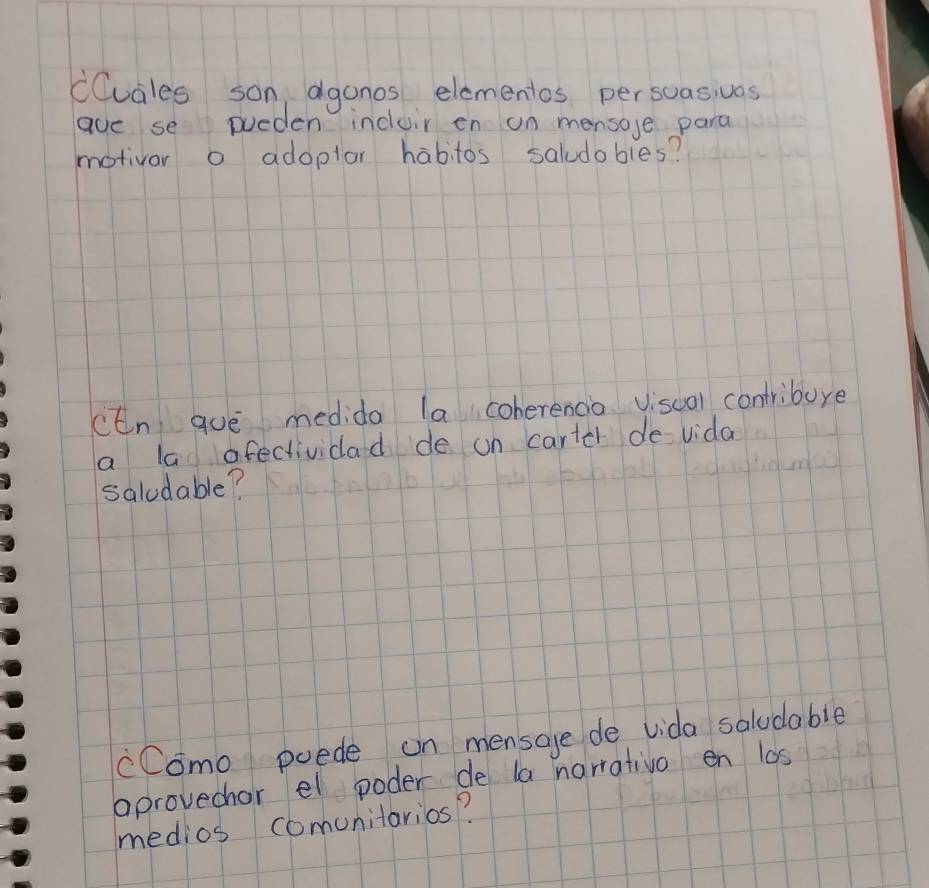 ¿Cuáles son algunos elementos persuasivos
que se pueden incluir en un mensaje para
motivar o adoptar hábitos saludables?
¿En qué medida la coherencia visual contribuye
a la afectividad de un cartel de vida
saludable?
¿Cómo puede un mensaje de vida saludable
aprovechar el poder de la narrativa en los
medios comunitarios?